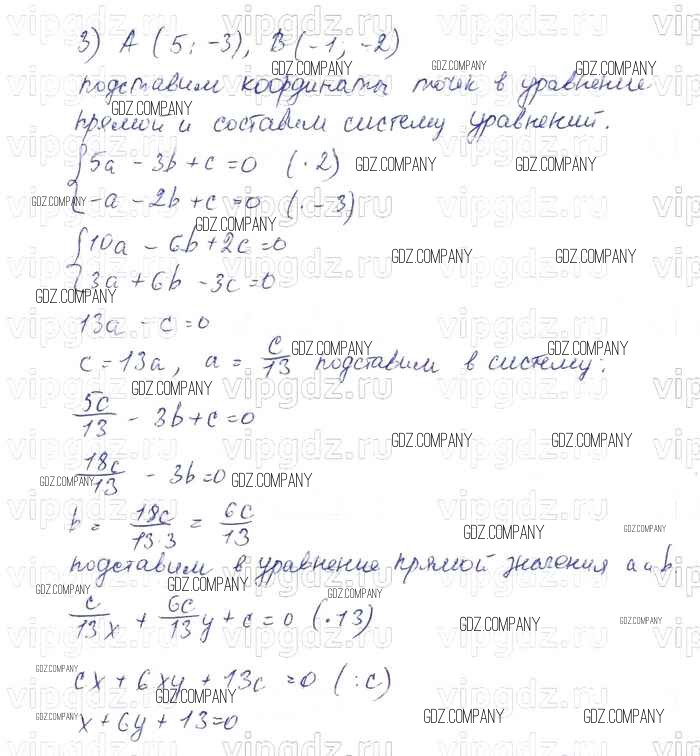 3) A (5; -3), B (-1, -2)
подставим координаты точек в уравнение
прямой и составим систему уравнений.
{5a - 3b + c = 0 (·2)
{-a - 2b + c = 0 (· -3)
{10a - 6b + 2c = 0
{3a + 6b - 3c = 0
13a - c = 0
c = 13a, a = c/13 подставим в систему:
5c/13 - 3b + c = 0
18c/13 - 3b = 0
b = 18c/13·3 = 6c/13
подставим в уравнение прямой значения a и b
c/13 x + 6c/13 y + c = 0 (·13)
cx + 6xy + 13c = 0 (:c)
x + 6y + 13 = 0
GDZ.COMPANY
vipgdz.ru